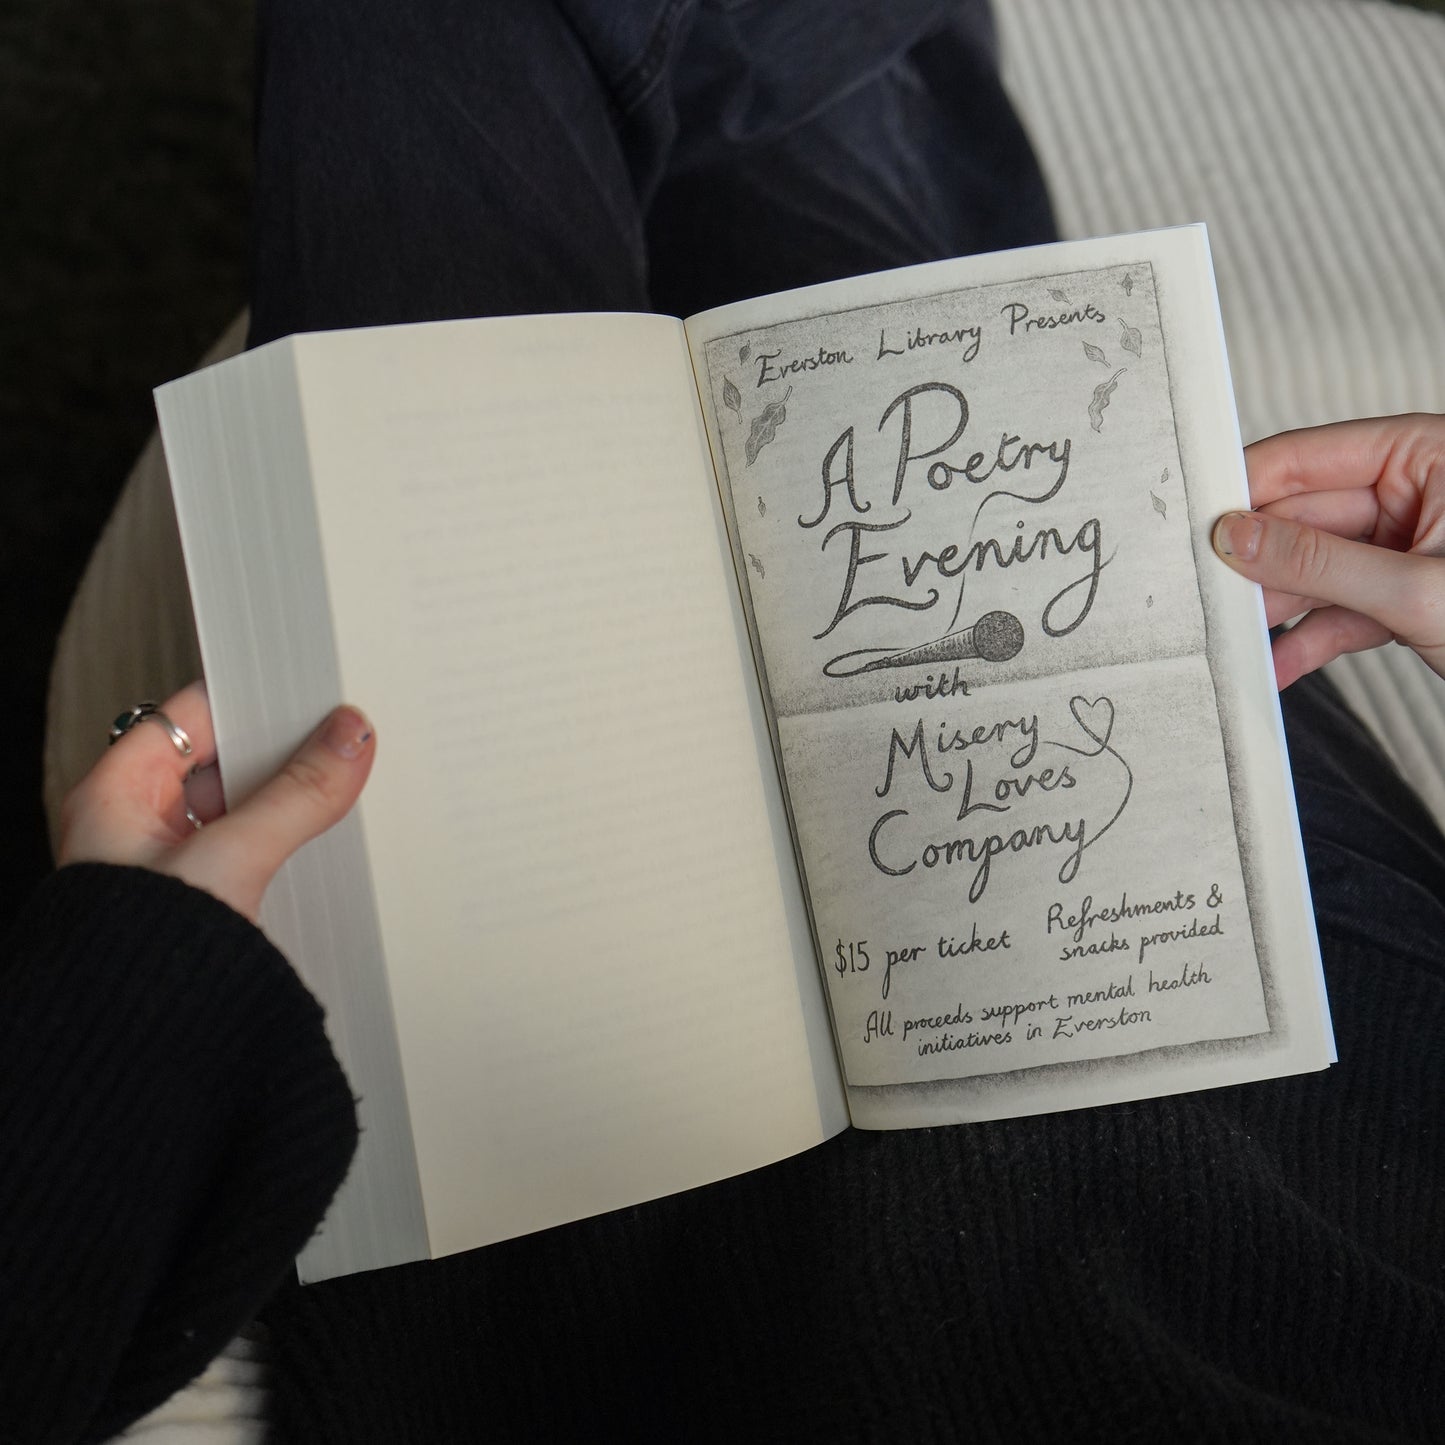 Everston Library Presents
A Poetry
Evening
with
Misery
Loves
Company
$15 per ticket
Refreshments &
snacks provided
All proceeds support mental health
initiatives in Everston